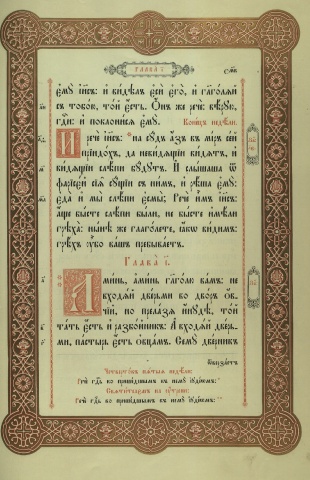 ГЛАВА́ і҃.
є҆мꙋ̀ і҆и҃съ: и҆ ви́дѣлъ є҆сѝ є҆го̀, и҆ глаго́лѧй
съ тобо́ю, то́й є҆́сть. Ѻ҆́нъ же речѐ: вѣ́рꙋю,
гд҇и: и҆ поклони́сѧ є҆мꙋ̀. Коне́цъ недѣ́ли.
И҆ речѐ і҆и҃съ: на сꙋ́дъ а҆́зъ въ мі́ръ се́й
прїидо́хъ, да неви́дѧщїи ви́дѧтъ, и҆
ви́дѧщїи слѣ́пи бꙋ́дꙋтъ. И҆ слы́шаша ѿ
фарїсє́й сїѧ̑ сꙋ́щїи съ ни́мъ, и҆ рѣ́ша є҆мꙋ̀:
є҆да̀ и҆ мы̀ слѣ́пи є҆смы̀; Речѐ и҆̀мъ і҆и҃съ:
а҆́ще бы́сте слѣ́пи бы́ли, не бы́сте и҆мѣ́ли
грѣха̀: нн҃ѣ же глаго́лете, ꙗ҆́кѡ ви́димъ:
грѣ́хъ ᲂу҆̀бо ва́шъ пребыва́етъ.
Глава̀ і҃.
А҆ми́нь, а҆ми́нь гл҃голю ва́мъ: не
входѧ́й две́рьми во дво́ръ ѻ҆́в-
чїй, но прела́зѧ и҆нꙋ́дѣ, то́й
та́ть є҆́сть и҆ разбо́йникъ: А҆ входѧ́й две́рь-
ми, па́стырь є҆́сть ѻ҆вца́мъ. Семꙋ̀ две́рникъ
ѿверза́етъ
Речѐ гд҇ь ко прише́дшымъ къ немꙋ̀ і҆ꙋде́ѡмъ:
Речѐ гд҇ь ко прише́дшымъ къ немꙋ̀ і҆ꙋде́ѡмъ: